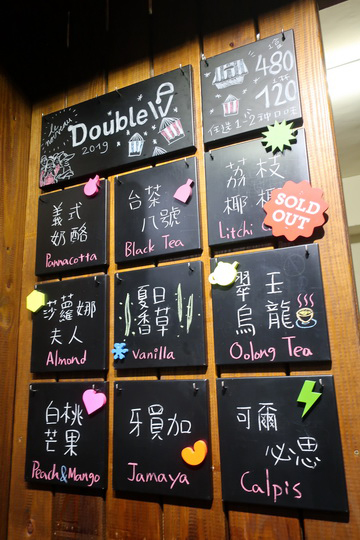 Double W
2019
一盒
480
120
任選
義式
奶酪
Pannacotta
台茶
八號
Black Tea
荔枝
椰
Litchi
SOLD
OUT
莎蘿娜
夫人
Almond
夏日
香草
Vanilla
翠玉
烏龍
Oolong Tea
白桃
芒果
Peach&Mango
牙買加
Jamaya
可爾
必思
Calpis